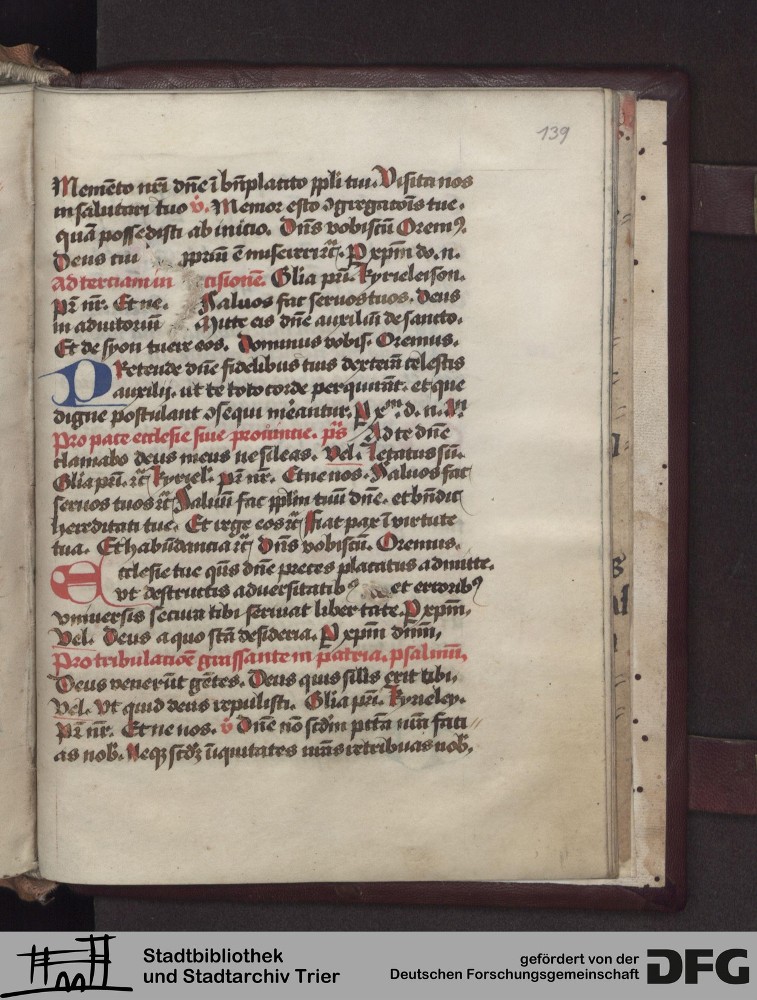 139
Memēto nrī dn̄e ī bn̄placito ppli tui. Visita nos
in salutari tuo v̄. Memor esto ↄgregatōis tue.
quā possedisti ab inicio. Dn̄s vobiscū Oremꝰ.
Deus cui ppriū ē misereri ꝛc̄. P xpm̄ do. n.
Ad terciam in cisionē. Glia pri. Kyrieleison.
Pr̄ nr̄. Et ne. Saluos fac seruos tuos. Deus
in adiutoriū Mitte eis dn̄e auxiliū de sancto.
Et de syon tuere eos. Dominus vobis. Oremus.
PRetende dn̄e fidelibus tuis dexterā celestis
auxilij. ut te toto corde perquirāt. et que
digne postulant ↄsequi mēantur. P xm̄. d. n.
Pro pace ecclesie siue prouincie. ps̄ Ad te dn̄e
clamabo deus meus ne sileas. Vel. Letatus sū.
Glia pri. ꝛc̄ Kyriel. pr̄ nr̄. Et ne nos. Saluos fac
seruos tuos ꝛc̄ Saluū fac pplm̄ tuū dn̄e. et bn̄dic
hereditati tue. Et rege eos ꝛc̄ Fiat pax ī virtute
tua. Et habūdancia ꝛc̄ Dn̄s vobiscū. Oremus.
Ecclesie tue qūs dn̄e preces placatus admitte.
vt destructis aduersitatibꝰ et erroribꝰ
vniuersis secura tibi seruiat libertate. P xpm̄.
Vel. Deus a quo sctā desideria. P xpm̄ dm̄m̄.
Pro tribulacōe grassante in patria. psalmū.
Deus venerūt gētes. Deus quis silis erit tibi.
Vel. Vt quid deus repulisti. Glia pri. Kyrieley.
Pr̄ nr̄. Et ne nos. v̄ Dn̄e nō scdm̄ pctā nrā faci
as nob̄. Neqꝫ scdꝫ īiquitates nrās retribuas nob̄.
Stadtbibliothek
und Stadtarchiv Trier
gefördert von der
Deutschen Forschungsgemeinschaft
DFG